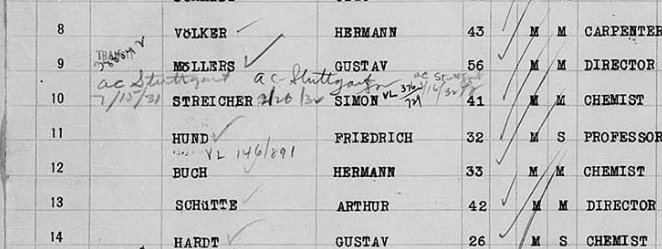 8 VöLKER HERMANN 43 M M CARPENTER
TRANSIT
9 MöLLERS GUSTAV 56 M M DIRECTOR
ac Stuttgart ac Stuttgart
7/15/31 2/20/32 VL 376/721 7/16/32
10 STREICHER SIMON 41 M M CHEMIST
11 HUND FRIEDRICH 32 M S PROFESSOR
VL 146/891
12 BUCH HERMANN 33 M M CHEMIST
13 SCHüTTE ARTHUR 42 M M DIRECTOR
14 HARDT GUSTAV 26 M S CHEMIST